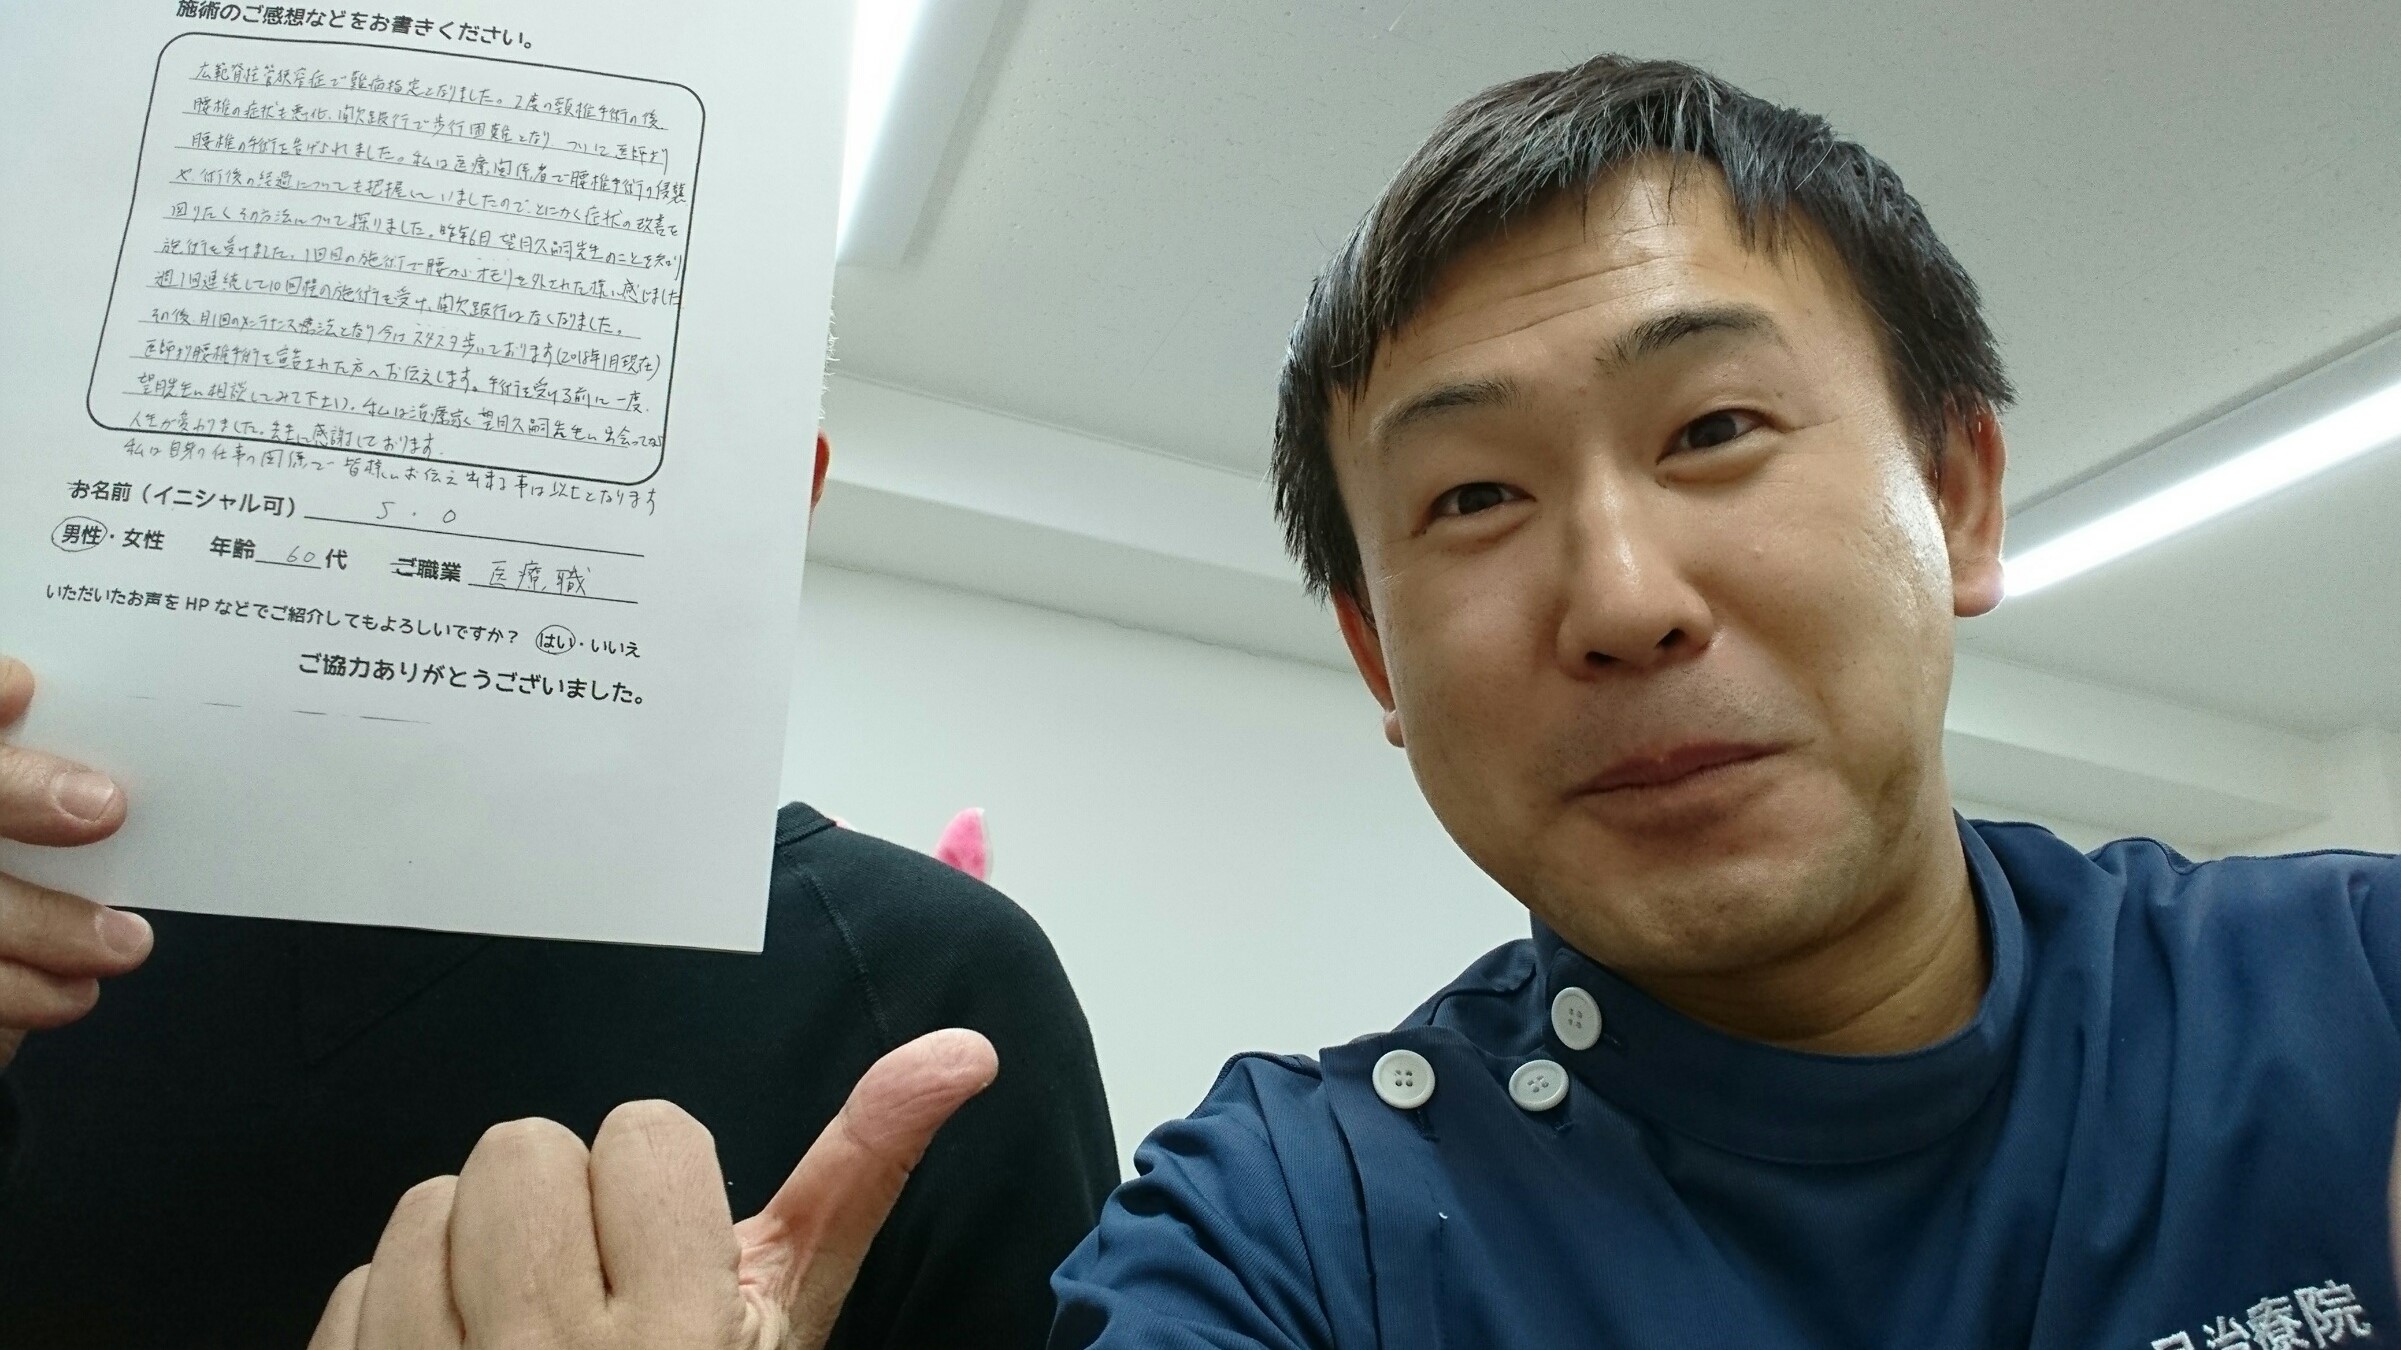 施術のご感想などをお書きください。
広範脊柱管狭窄症で難病指定となりました。2度の頸椎手術の後、
腰椎の症状も悪化、間欠跛行で歩行困難となり ついに医師より
腰椎の手術を告げられました。私は医療関係者で腰椎手術の侵襲
や、術後の経過についても把握していましたので、とにかく症状の改善を
図りたくその方法について探りました。昨年6月 望月久嗣先生のことを知り
施術を受けました。1回目の施術で腰からオモリを外された様に感じました
週1回連続して10回程の施術を受け、間欠跛行はなくなりました。
その後、月1回のメンテナンス療法となり今はスタスタ歩いております(2018年1月現在)
医師より腰椎手術を宣告された方へお伝えします。手術を受ける前に一度、
望月先生に相談してみて下さい。私は治療家 望月久嗣先生に出会って
人生が変わりました。先生に感謝しております。
私は自身の仕事の関係で皆様にお伝え出来る事は以上となります
お名前（イニシャル可） S.O
男性・女性 年齢 60代 ご職業 医療職
いただいたお声をHPなどでご紹介してもよろしいですか？ はい・いいえ
ご協力ありがとうございました。
治療院